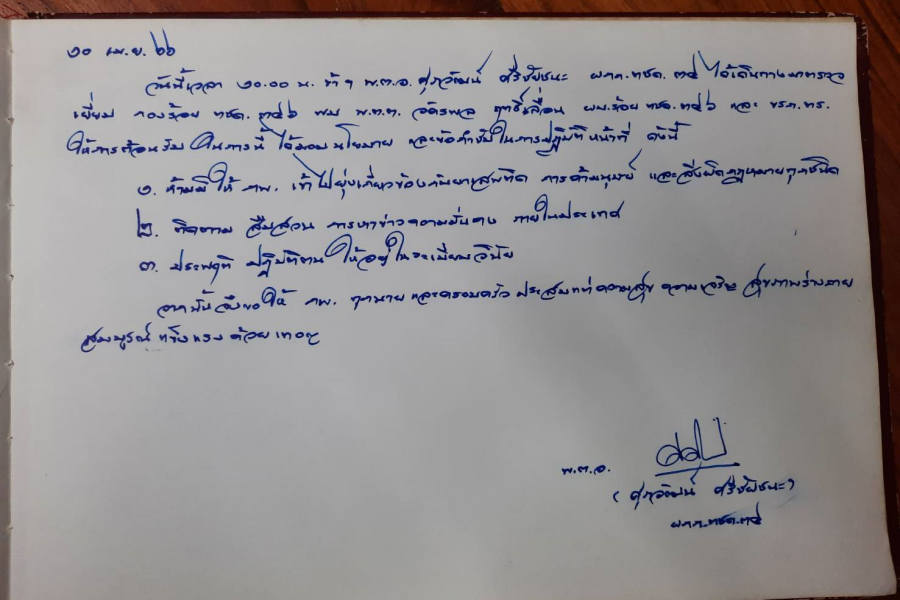 ๒๐ เม.ย. ๖๖
วันนี้เวลา ๒๐.๐๐ น. ข้าฯ พ.ต.อ. ศุภวัฒน์ ศรีชัยชนะ ผกก.ตชด. ๓๔ ได้เดินทางมาตรวจ
เยี่ยม กองร้อย ตชด. ๓๔๖ พบ พ.ต.ต. จักรพล ฤทธิ์เลื่อน ผบ.ร้อย ตชด.๓๔๖ และ ขรก.ตร.
ให้การต้อนรับ ในการนี้ ได้มอบนโยบาย และข้อกำชับในการปฏิบัติหน้าที่ ดังนี้
๑. ห้ามมิให้ กพ. เข้าไปยุ่งเกี่ยวข้องกับยาเสพติด การค้ามนุษย์ และสิ่งผิดกฎหมายทุกชนิด
๒. ติดตาม สืบสวน การหาข่าวความมั่นคง ภายในประเทศ
๓. ประพฤติ ปฏิบัติตน ให้อยู่ในระเบียบวินัย
จากนั้นจึงขอให้ กพ. ทุกนาย และครอบครัว ประสบแต่ความสุข ความเจริญ สุขภาพร่างกาย
สมบูรณ์ แข็งแรง ด้วย เทอญ
พ.ต.อ.
( ศุภวัฒน์ ศรีชัยชนะ )
ผกก.ตชด.๓๔